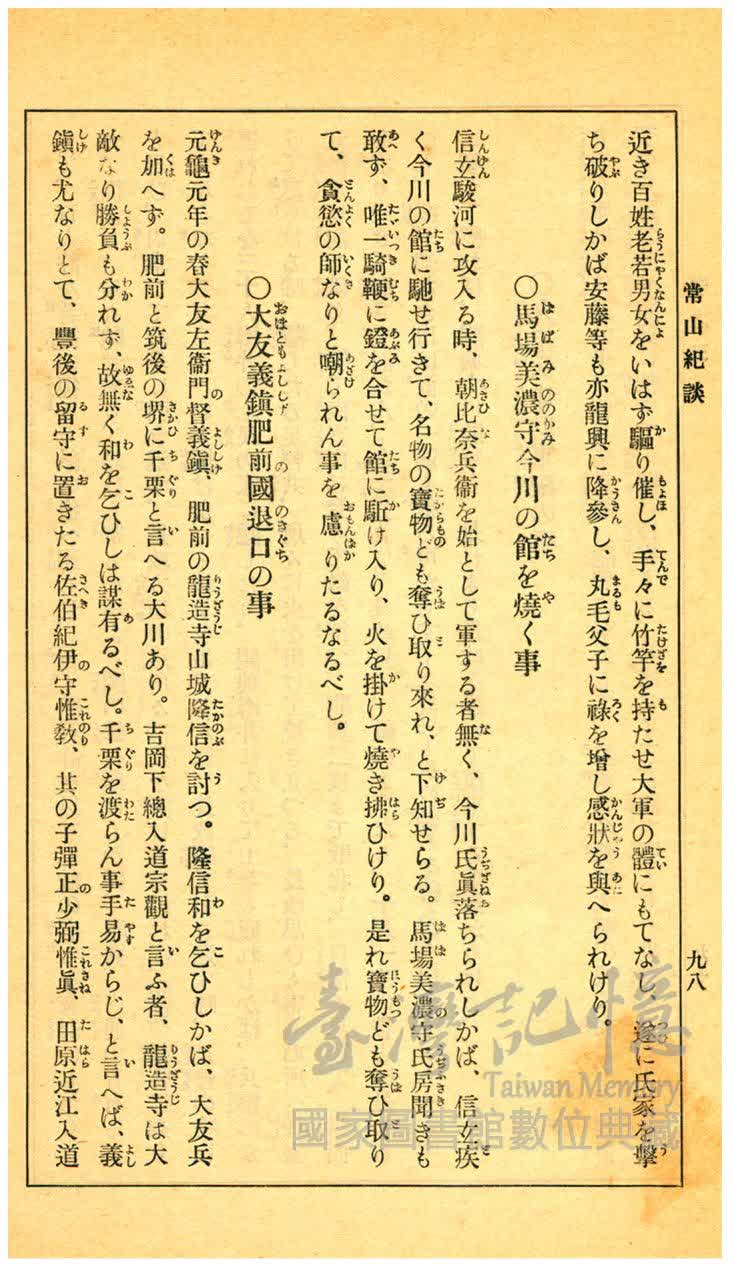 常山紀談
九八
近き百姓老若男女をいはず驅り催し、手々に竹竿を持たせ大軍の體にもてなし、遂に氏家を擊
ち破りしかば安藤等も亦龍興に降參し、丸毛父子に祿を增し感狀を與へられけり。
○馬場美濃守今川の館を燒く事
信玄駿河に攻入る時、朝比奈兵衞を始として軍する者無く、今川氏眞落ちられしかば、信玄疾
く今川の館に馳せ行きて、名物の寶物ども奪ひ取り來れ、と下知せらる。馬場美濃守氏房聞きも
敢ず、唯一騎鞭に鐙を合せて館に駈け入り、火を掛けて燒き拂ひけり。是れ寶物ども奪ひ取り
て、貪慾の師なりと嘲られん事を慮りたるなるべし。
○大友義鎭肥前國退口の事
元龜元年の春大友左衞門督義鎭、肥前の龍造寺山城隆信を討つ。隆信和を乞ひしかば、大友兵
を加へず。肥前と筑後の堺に千栗と言へる大川あり。吉岡下總入道宗觀と言ふ者、龍造寺は大
敵なり勝負も分れず、故無く和を乞ひしは謀有るべし。千栗を渡らん事手易からじ、と言へば、義
鎭も尤なりとて、豐後の留守に置きたる佐伯紀伊守惟敎、其の子彈正少弼惟眞、田原近江入道
臺灣記憶
Taiwan Memory
國家圖書館數位典藏